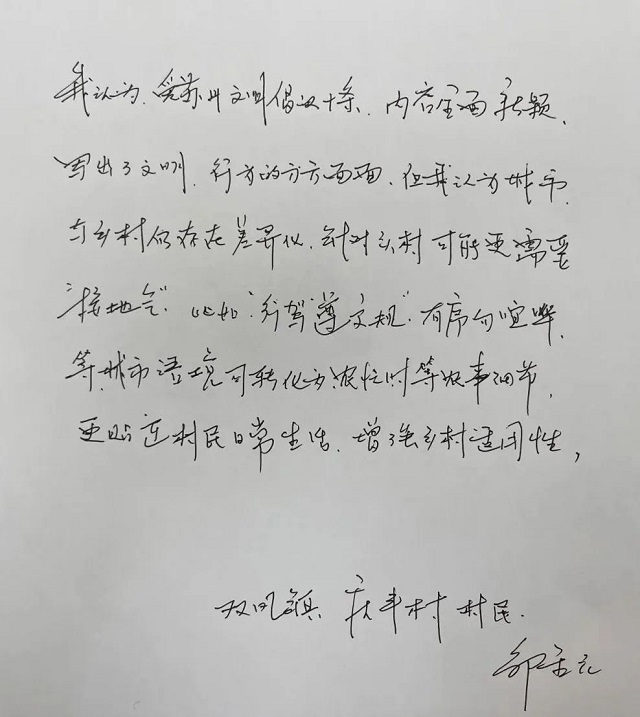 我认为.爱苏州文明倡议十条.内容全面新颖.
写出了文明.行为的方方面面.但我认为城市.
与乡村仍存在差异化.针对乡村可能更需要
"接地气".比如"行驾遵交规".有序勿喧哗.
等.城市语境可转化为农忙时等农事细节,
更贴近村民日常生活.增强乡村适用性,
双凤镇.庆丰村村民.